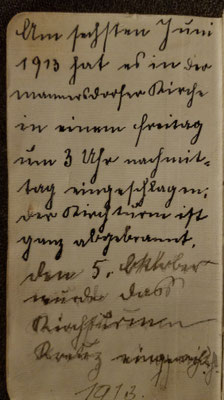 Am sechsten Juni
1913 hat es in der
Mannersdorfer Kirche
in einem Freitag
um 3 Uhr nachmit-
tag eingeschlagen,
der Kirchturm ist
ganz abgebrannt,
den 5. Oktober
wurde das
Kirchturmen
Kreuz eingeweiht.
1913.